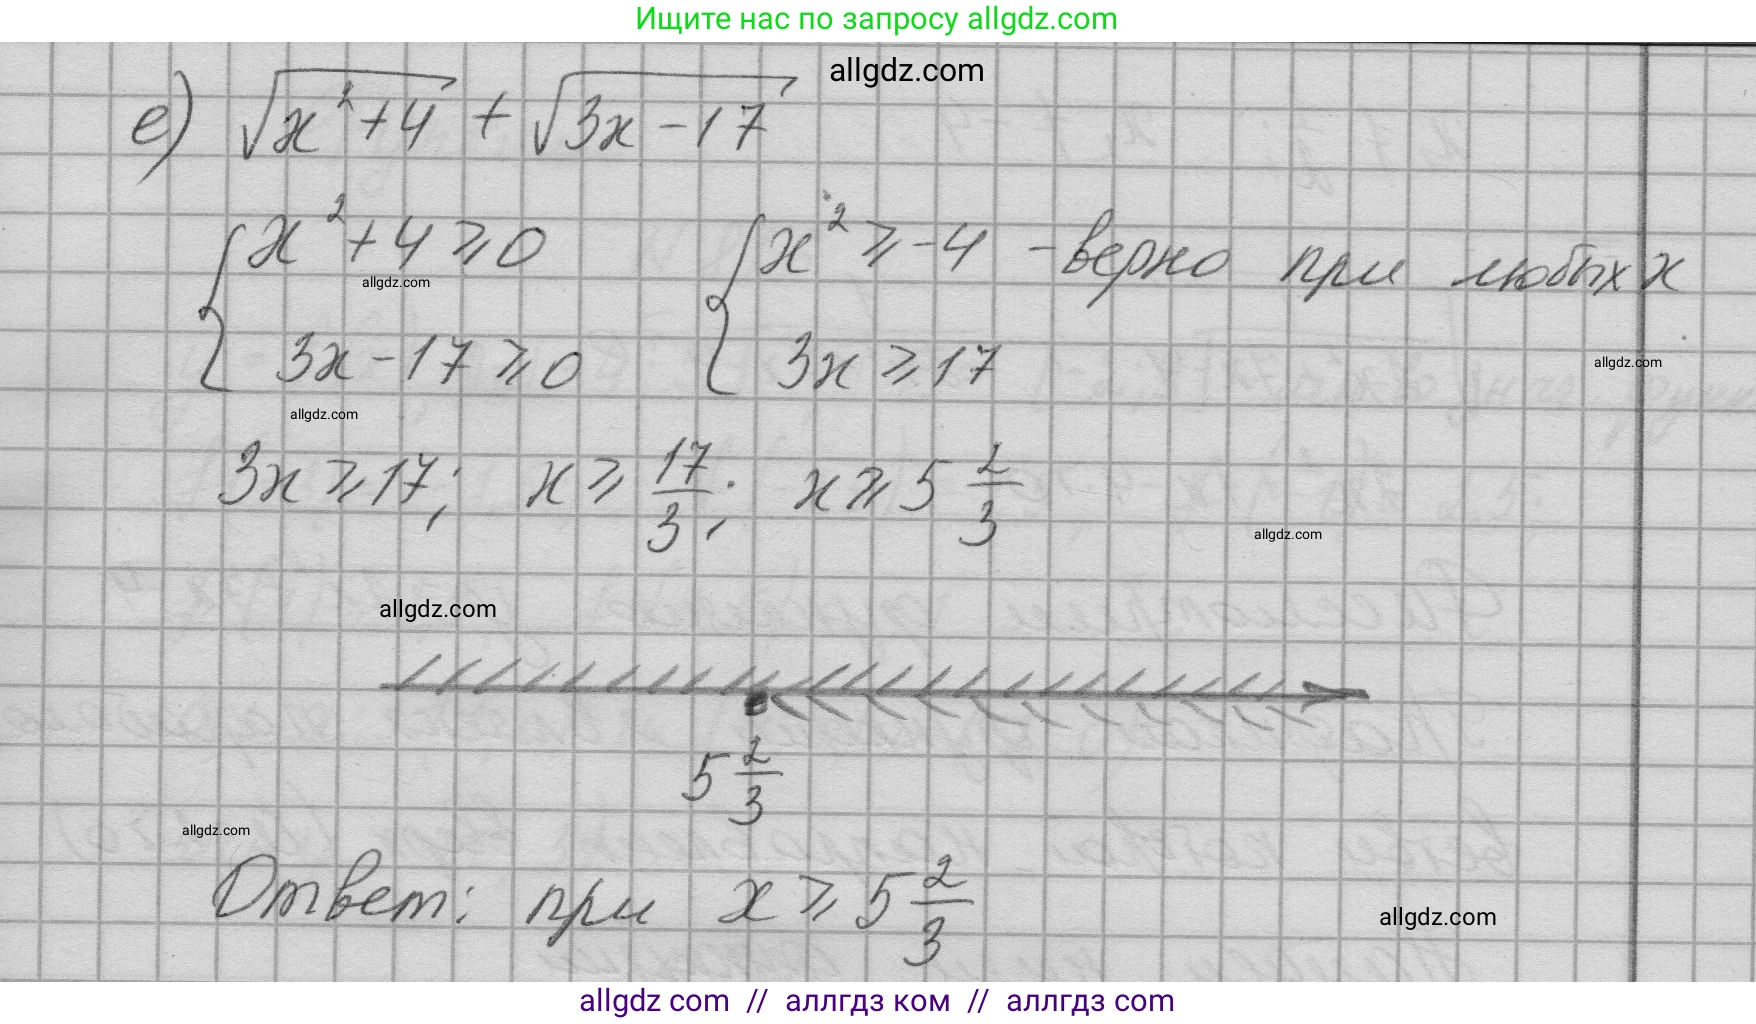 Ищите нас по запросу allgdz.com
allgdz.com
е) √(x²+4) + √(3x-17)
{ x²+4⩾0 { x²⩾-4 - верно при любых x
allgdz.com
3x-17⩾0 3x⩾17
allgdz.com
allgdz.com
3x⩾17; x⩾17/3; x⩾5 2/3
allgdz.com
allgdz.com
5 2/3
allgdz.com
Ответ: при x⩾5 2/3
allgdz.com
allgdz com // аллгдз ком // аллгдз com